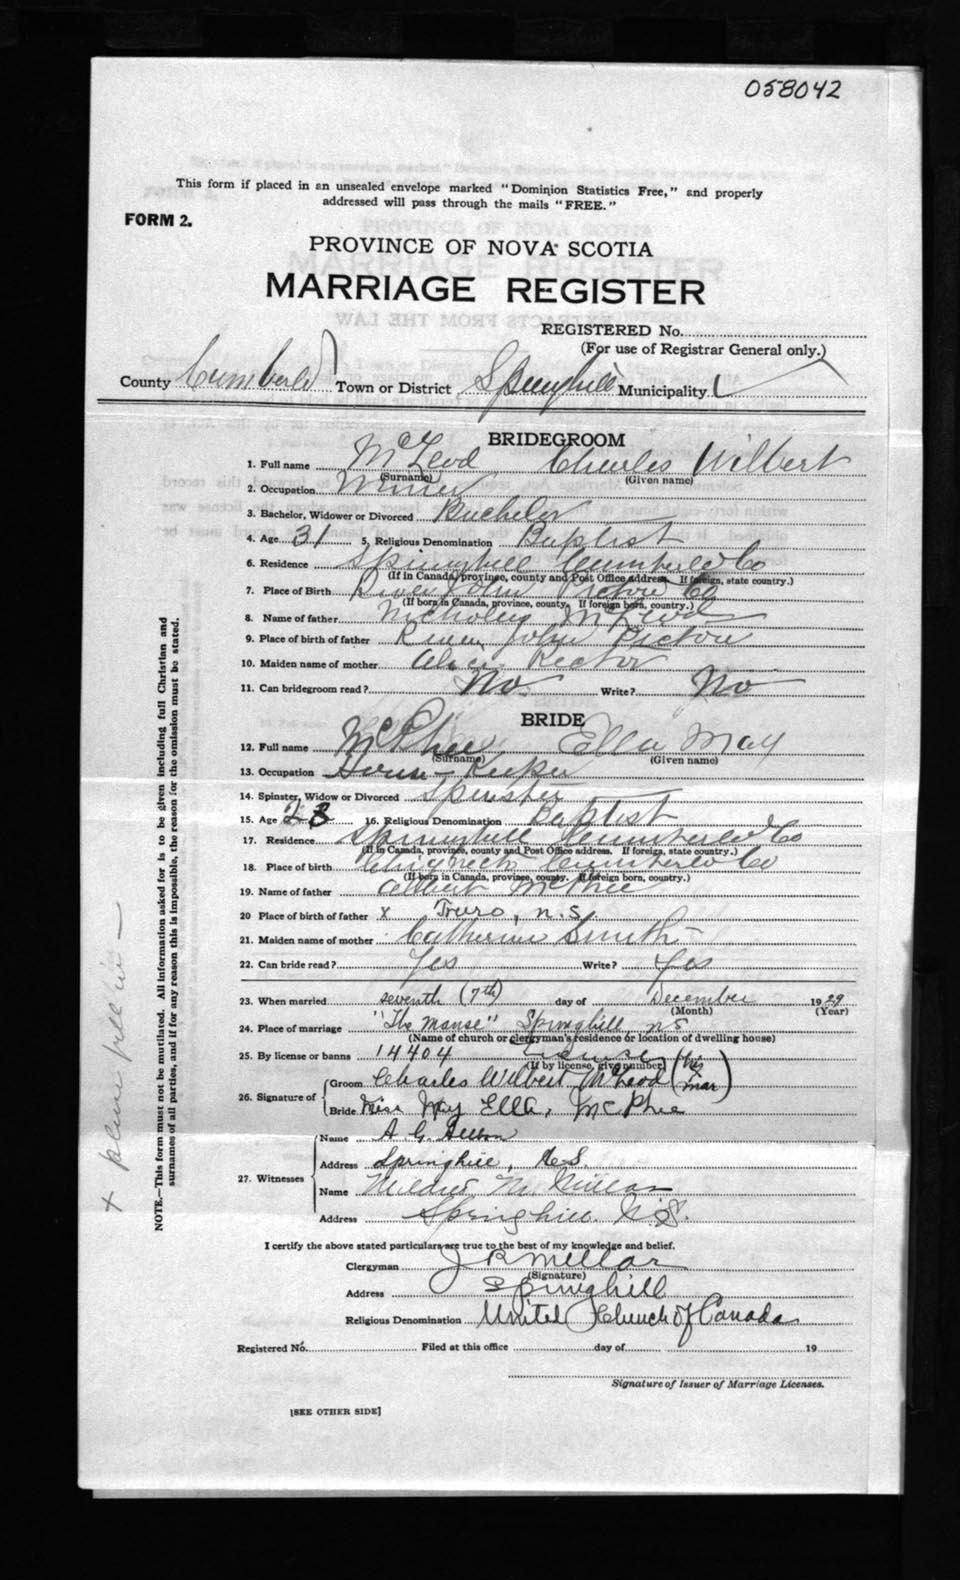 058042
This form if placed in an unsealed envelope marked "Dominion Statistics Free," and properly
addressed will pass through the mails "FREE."
FORM 2.
PROVINCE OF NOVA SCOTIA
MARRIAGE REGISTER
REGISTERED No.
(For use of Registrar General only.)
County Cumberld Town or District Springhill Municipality
BRIDEGROOM
1. Full name McLeod Charles Wilbert
(Surname) (Given name)
2. Occupation Miner
3. Bachelor, Widower or Divorced Bachelor
4. Age 31 5. Religious Denomination Baptist
6. Residence Springhill Cumberld Co
(If in Canada, province, county and Post Office address. If foreign, state country.)
7. Place of Birth River John Pictou Co
(If born in Canada, province, county. If foreign born, country.)
8. Name of father Nicholas McLeod
9. Place of birth of father River John Pictou
10. Maiden name of mother Rector
11. Can bridegroom read? No Write? No
BRIDE
12. Full name McPhee Ella May
(Surname) (Given name)
13. Occupation House-Keeper
14. Spinster, Widow or Divorced Spinster
15. Age 28 16. Religious Denomination Baptist
17. Residence Springhill Cumberld Co
(If in Canada, province, county and Post Office address. If foreign, state country.)
18. Place of birth Cumberld Co
(If born in Canada, province, county. If foreign born, country.)
19. Name of father Albert McPhee
20 Place of birth of father x Truro, n.s.
21. Maiden name of mother Catherine Smith
22. Can bride read? Yes Write? Yes
23. When married seventh (7th) day of December 1929
(Month) (Year)
24. Place of marriage "The Manse" Springhill, n s
(Name of church or clergyman's residence or location of dwelling house)
25. By license or banns 14404 License
(If by license, give number)
26. Signature of
Groom Charles Wilbert McLeod (his mar)
Bride Miss May Ella, McPhee
27. Witnesses
Name A. G.
Address Springhill, N.S.
Name Mildred M. Millar
Address Springhill. N.S.
I certify the above stated particulars are true to the best of my knowledge and belief.
Clergyman J R Millar
(Signature)
Address Springhill
Religious Denomination United Church of Canada
Registered No. Filed at this office day of 19
Signature of Issuer of Marriage Licenses.
[SEE OTHER SIDE]
NOTE.—This form must not be mutilated. All information asked for is to be given including full Christian and
surnames of all parties, and if for any reason this is impossible, the reason for the omission must be stated.
x please fill in —